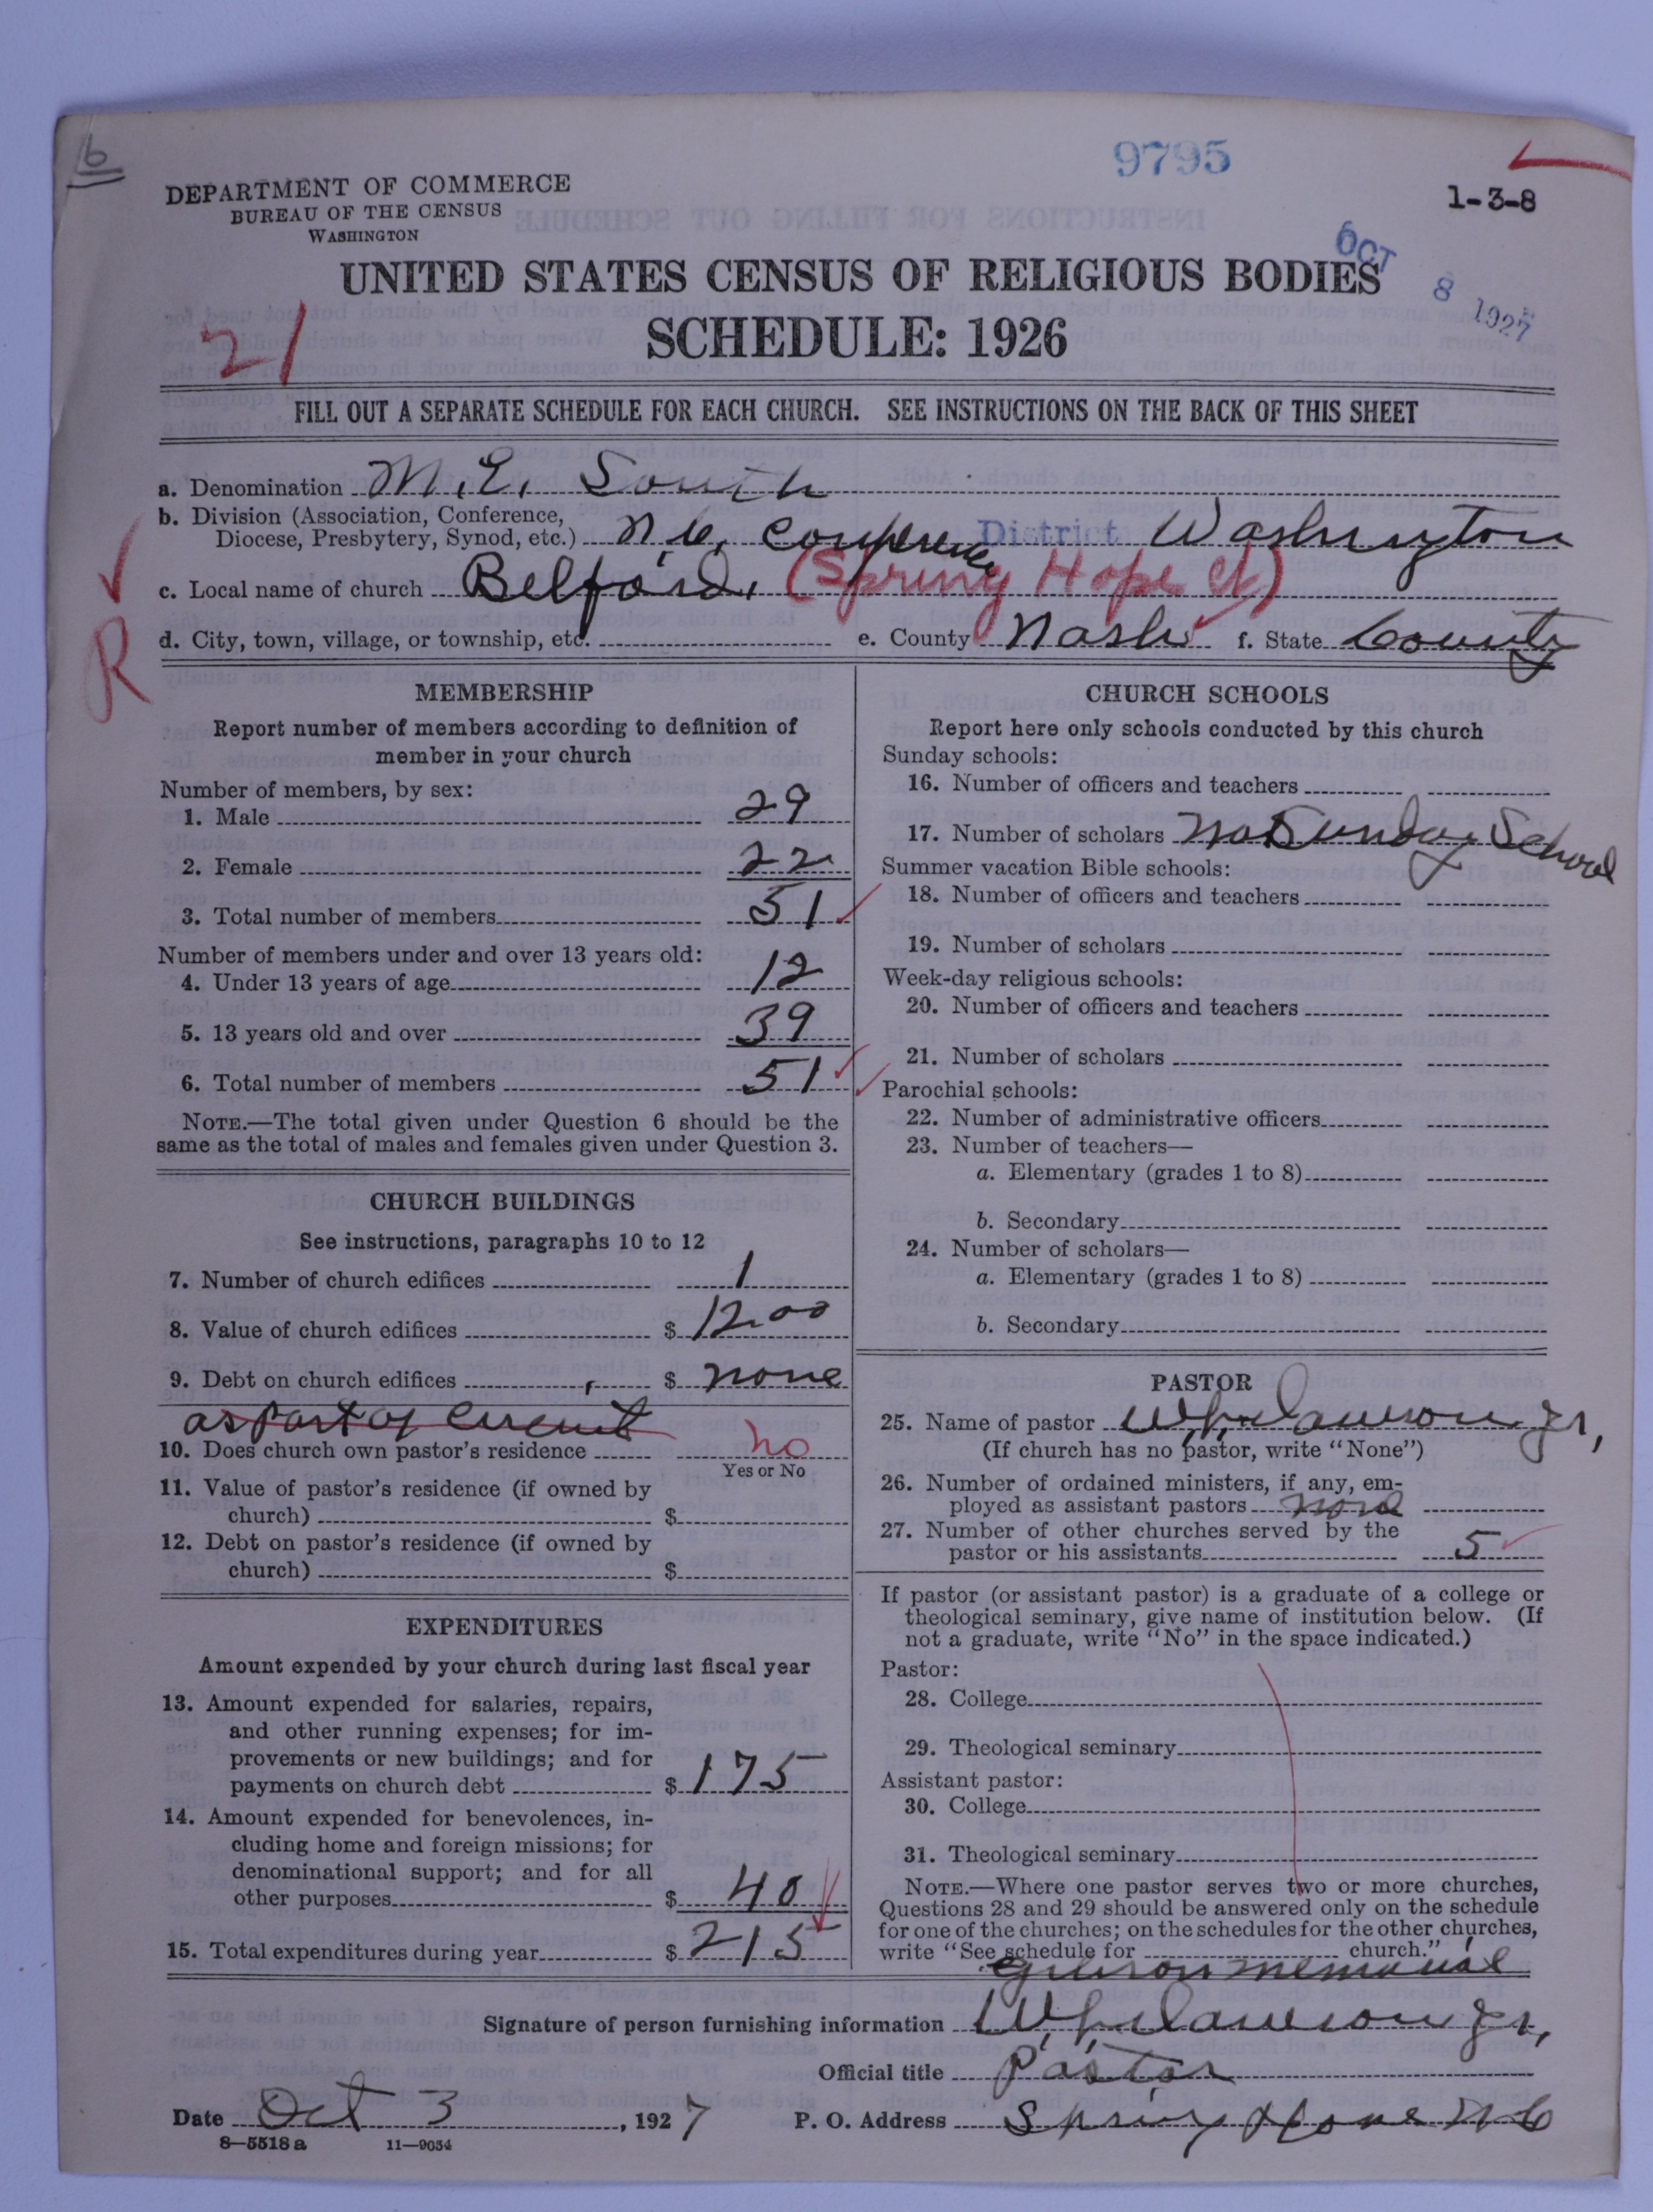 6
9795
1-3-8
DEPARTMENT OF COMMERCE
BUREAU OF THE CENSUS
WASHINGTON
OCT 8 1927
UNITED STATES CENSUS OF RELIGIOUS BODIES
SCHEDULE: 1926
21
FILL OUT A SEPARATE SCHEDULE FOR EACH CHURCH. SEE INSTRUCTIONS ON THE BACK OF THIS SHEET
a. Denomination M. E. South
b. Division (Association, Conference,
Diocese, Presbytery, Synod, etc.) N.C. Conference District Washington
c. Local name of church Belford, (Spring Hope Ct)
R
d. City, town, village, or township, etc. e. County Nash f. State County
MEMBERSHIP
Report number of members according to definition of
member in your church
Number of members, by sex:
1. Male 29
2. Female 22
3. Total number of members 51
Number of members under and over 13 years old:
4. Under 13 years of age 12
5. 13 years old and over 39
6. Total number of members 51
NOTE.—The total given under Question 6 should be the
same as the total of males and females given under Question 3.
CHURCH BUILDINGS
See instructions, paragraphs 10 to 12
7. Number of church edifices 1
8. Value of church edifices $ 1200
9. Debt on church edifices $ none
as part of circuit
10. Does church own pastor's residence no
Yes or No
11. Value of pastor's residence (if owned by
church) $
12. Debt on pastor's residence (if owned by
church) $
EXPENDITURES
Amount expended by your church during last fiscal year
13. Amount expended for salaries, repairs,
and other running expenses; for im-
provements or new buildings; and for
payments on church debt $ 175
14. Amount expended for benevolences, in-
cluding home and foreign missions; for
denominational support; and for all
other purposes $ 40
15. Total expenditures during year $ 215
CHURCH SCHOOLS
Report here only schools conducted by this church
Sunday schools:
16. Number of officers and teachers
17. Number of scholars No Sunday School
Summer vacation Bible schools:
18. Number of officers and teachers
19. Number of scholars
Week-day religious schools:
20. Number of officers and teachers
21. Number of scholars
Parochial schools:
22. Number of administrative officers
23. Number of teachers—
a. Elementary (grades 1 to 8)
b. Secondary
24. Number of scholars—
a. Elementary (grades 1 to 8)
b. Secondary
PASTOR
25. Name of pastor Jr,
(If church has no pastor, write "None")
26. Number of ordained ministers, if any, em-
ployed as assistant pastors none
27. Number of other churches served by the
pastor or his assistants 5
If pastor (or assistant pastor) is a graduate of a college or
theological seminary, give name of institution below. (If
not a graduate, write "No" in the space indicated.)
Pastor:
28. College
29. Theological seminary
Assistant pastor:
30. College
31. Theological seminary
NOTE.—Where one pastor serves two or more churches,
Questions 28 and 29 should be answered only on the schedule
for one of the churches; on the schedules for the other churches,
write "See schedule for church."
Gibson memorial
Signature of person furnishing information Jr,
Official title Pastor
Date Oct 3, 1927 P. O. Address Spring Hope N C
8—5518 a 11—9054